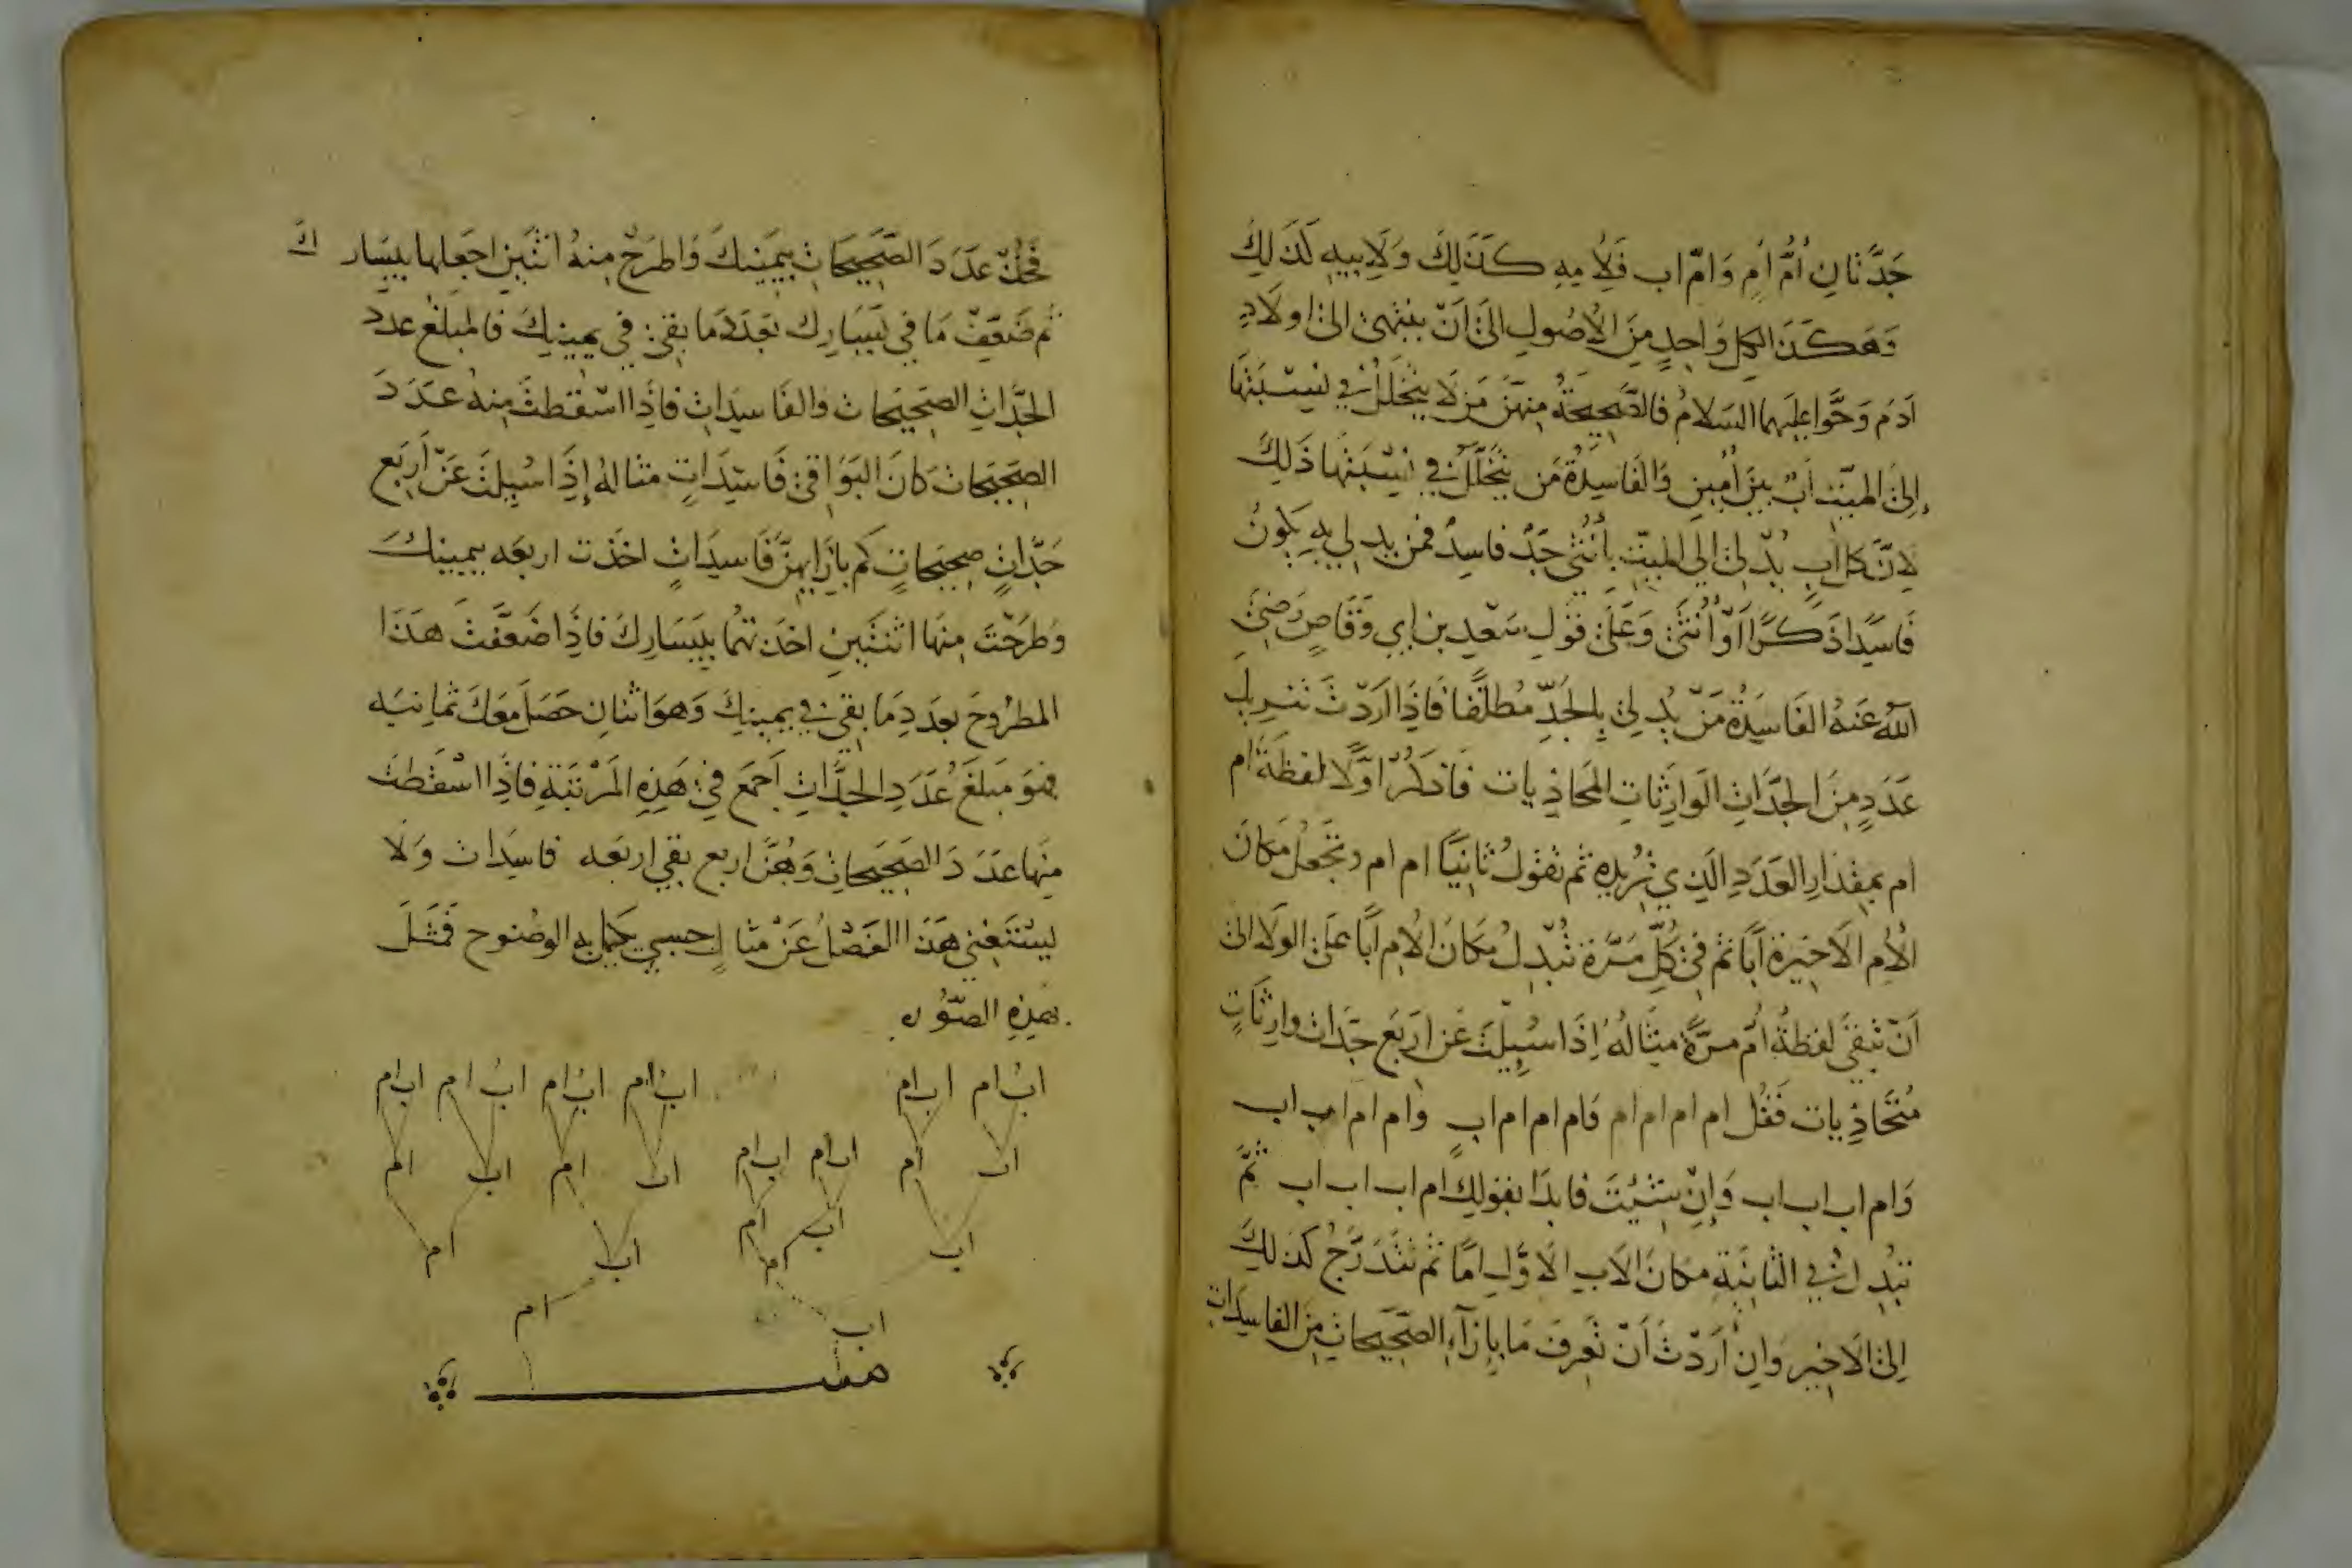 جَدَّتَانِ أُمُّ أُمٍ وَأمّ اب فَلِأُمِهِ كَذَلِكَ وَلِأَبِيهِ كَذَلِكَ
وَهَكَذَا لِكِلِّ وَاحِدٍ مِنَ الْأُصُولِ إلَىَ أَنّ يَنْتَهىَ الىَ اولَادِ
آدَمَ وَحَوَّا عليهما السَلامُ فالصَّحِيحَةُ مِنْهنَّ مَن لَا يَتَخَلَلُ في نِسْبَتِهَا
إِلىَ الميّتِ أبٌ بَيْنَ أُمَّينِ وَالفَاسِدَةُ مَن يَتَخَلَّلُ في نِسْبَتِهَا ذَلِكَ
لِأنَّ كل أبٍ يُدْلىِ إلى الميّتِ بِأُنْثَى جَدٌ فاسِدٌ فمن يدلى بِهِ يَكونُ
فَاسِدًا ذَكَرًا أَوْ أُنْثَى وَعَلَى قَولِ سَعْدِ بن ابي وَقَّاصٍ رَضِيَ
اللهُ عَنهُ الفَاسِدَةُ مَنْ يُدْلِى بِالجَدِّ مُطلَقًا فَاِذَا أَرَدْتَ تَنزِيلَ
عَدَدٍ مِنَ الجَدَّاتِ الوَارِثَاتِ المتَحَاذِيات فَاذكُرْ اوَّلًا لفظَةَ ام
ام بمِقدَارِ العَدَدِ الَّذِي تُرِيْدُهُ ثم تقولُ ثَانِيًا ام ام وتجْعَلُ مَكَانَ
الْأُمِ الأَخِيرَةِ أَبًا ثم فيِ كُلِّ مَرَّةٍ تُبْدِلُ مَكَانَ الْأُمِ أَبًا عَلىَ الوِلَا الىَ
أَنْ تَبْقىَ لَفظَةُ أمّ مَرَّةً مِثَالُهُ إِذَا سُئِلْتَ عَن ارَبَع جَدَّات وارِثَاتٍ
مُتَحَاذِيات فَقُل ام ام ام ام ام وَام ام ام ام اب وام ام ام اب اب
وَام اب اب اب وَإِنْ شِئْتَ فابدَا بقولِكَ ام اب اب اب اب ثمَّ
تبْدِلُ في الثانِيَةِ مكَانَ الاب الاوَّلِ امًّا ثم تَتَدَرَّجُ كذلكَ
الىَ الأخِيرِ وَإنْ أَرَدْتَ أَنْ تَعْرِفَ مَا بِإِزَآءِ الصَّحِيحَاتِ مِنَ الفاسِدَاتِ
فَخُذْ عَدَدَ الصَّحِيحَاتِ بِيَمِينِكَ وَاطرَحْ مِنهُ اثنَيْنِ اجعَلهما بيسَارِكَ
ثم ضَعِّفْ مَا فى يَسَارِكَ بَعَدَدِ مَا بقى فى يمينِكَ فالمبلَغ عدد
الجَدَّاتِ الصَّحِيْحَات وَالفَاسِدَاتِ فاذَا اسْقطتَ مِنهُ عَدَدَ
الصَّحِيحَات كَانَ البَوَاقِى فَاسِدَاتٍ مثالهُ إِذَا سُئِلتَ عَنْ أَرْبَع
جَدَّاتٍ صَحِيحَاتٍ كم بازَايهنَّ فَاسِدَاتٍ اخَذت اربعَه بيمينكَ
وَطَرَحْتَ مِنهَا اثنَتَينِ اخَذتهُما بِيَسَارِكَ فاذَا ضَعَّفتَ هَذَا
المَطرُوحَ بعَدَدِ مَا بقى فى يمينكَ وَهوَ اثنانِ حَصَلَ مَعَكَ ثمانيَه
فهوَ مَبلَغُ عَدَدِ الجَدَّاتِ أجمَعَ في هَذِهِ المَرْتَبَةِ فاذَا اسْقَطتَ
مِنهَا عدَدَ الصَّحِيحَاتِ وَهُنَّ اربع بقى اربَعه فاسِدَات وَلَا
يستَغني هَذَا الفَصْلُ عَنْ مثالٍ حسى يكمل به الوضوح فَمَثَّلَ
بهذِهِ الصُّوَر
ابُ ام اب ام ابُ ام ابُ ام ابُ ام اب ام
اب ام اب ام
اب ام اب ام اب ام
اب ام
اب ام اب ام
اب ام
ميت